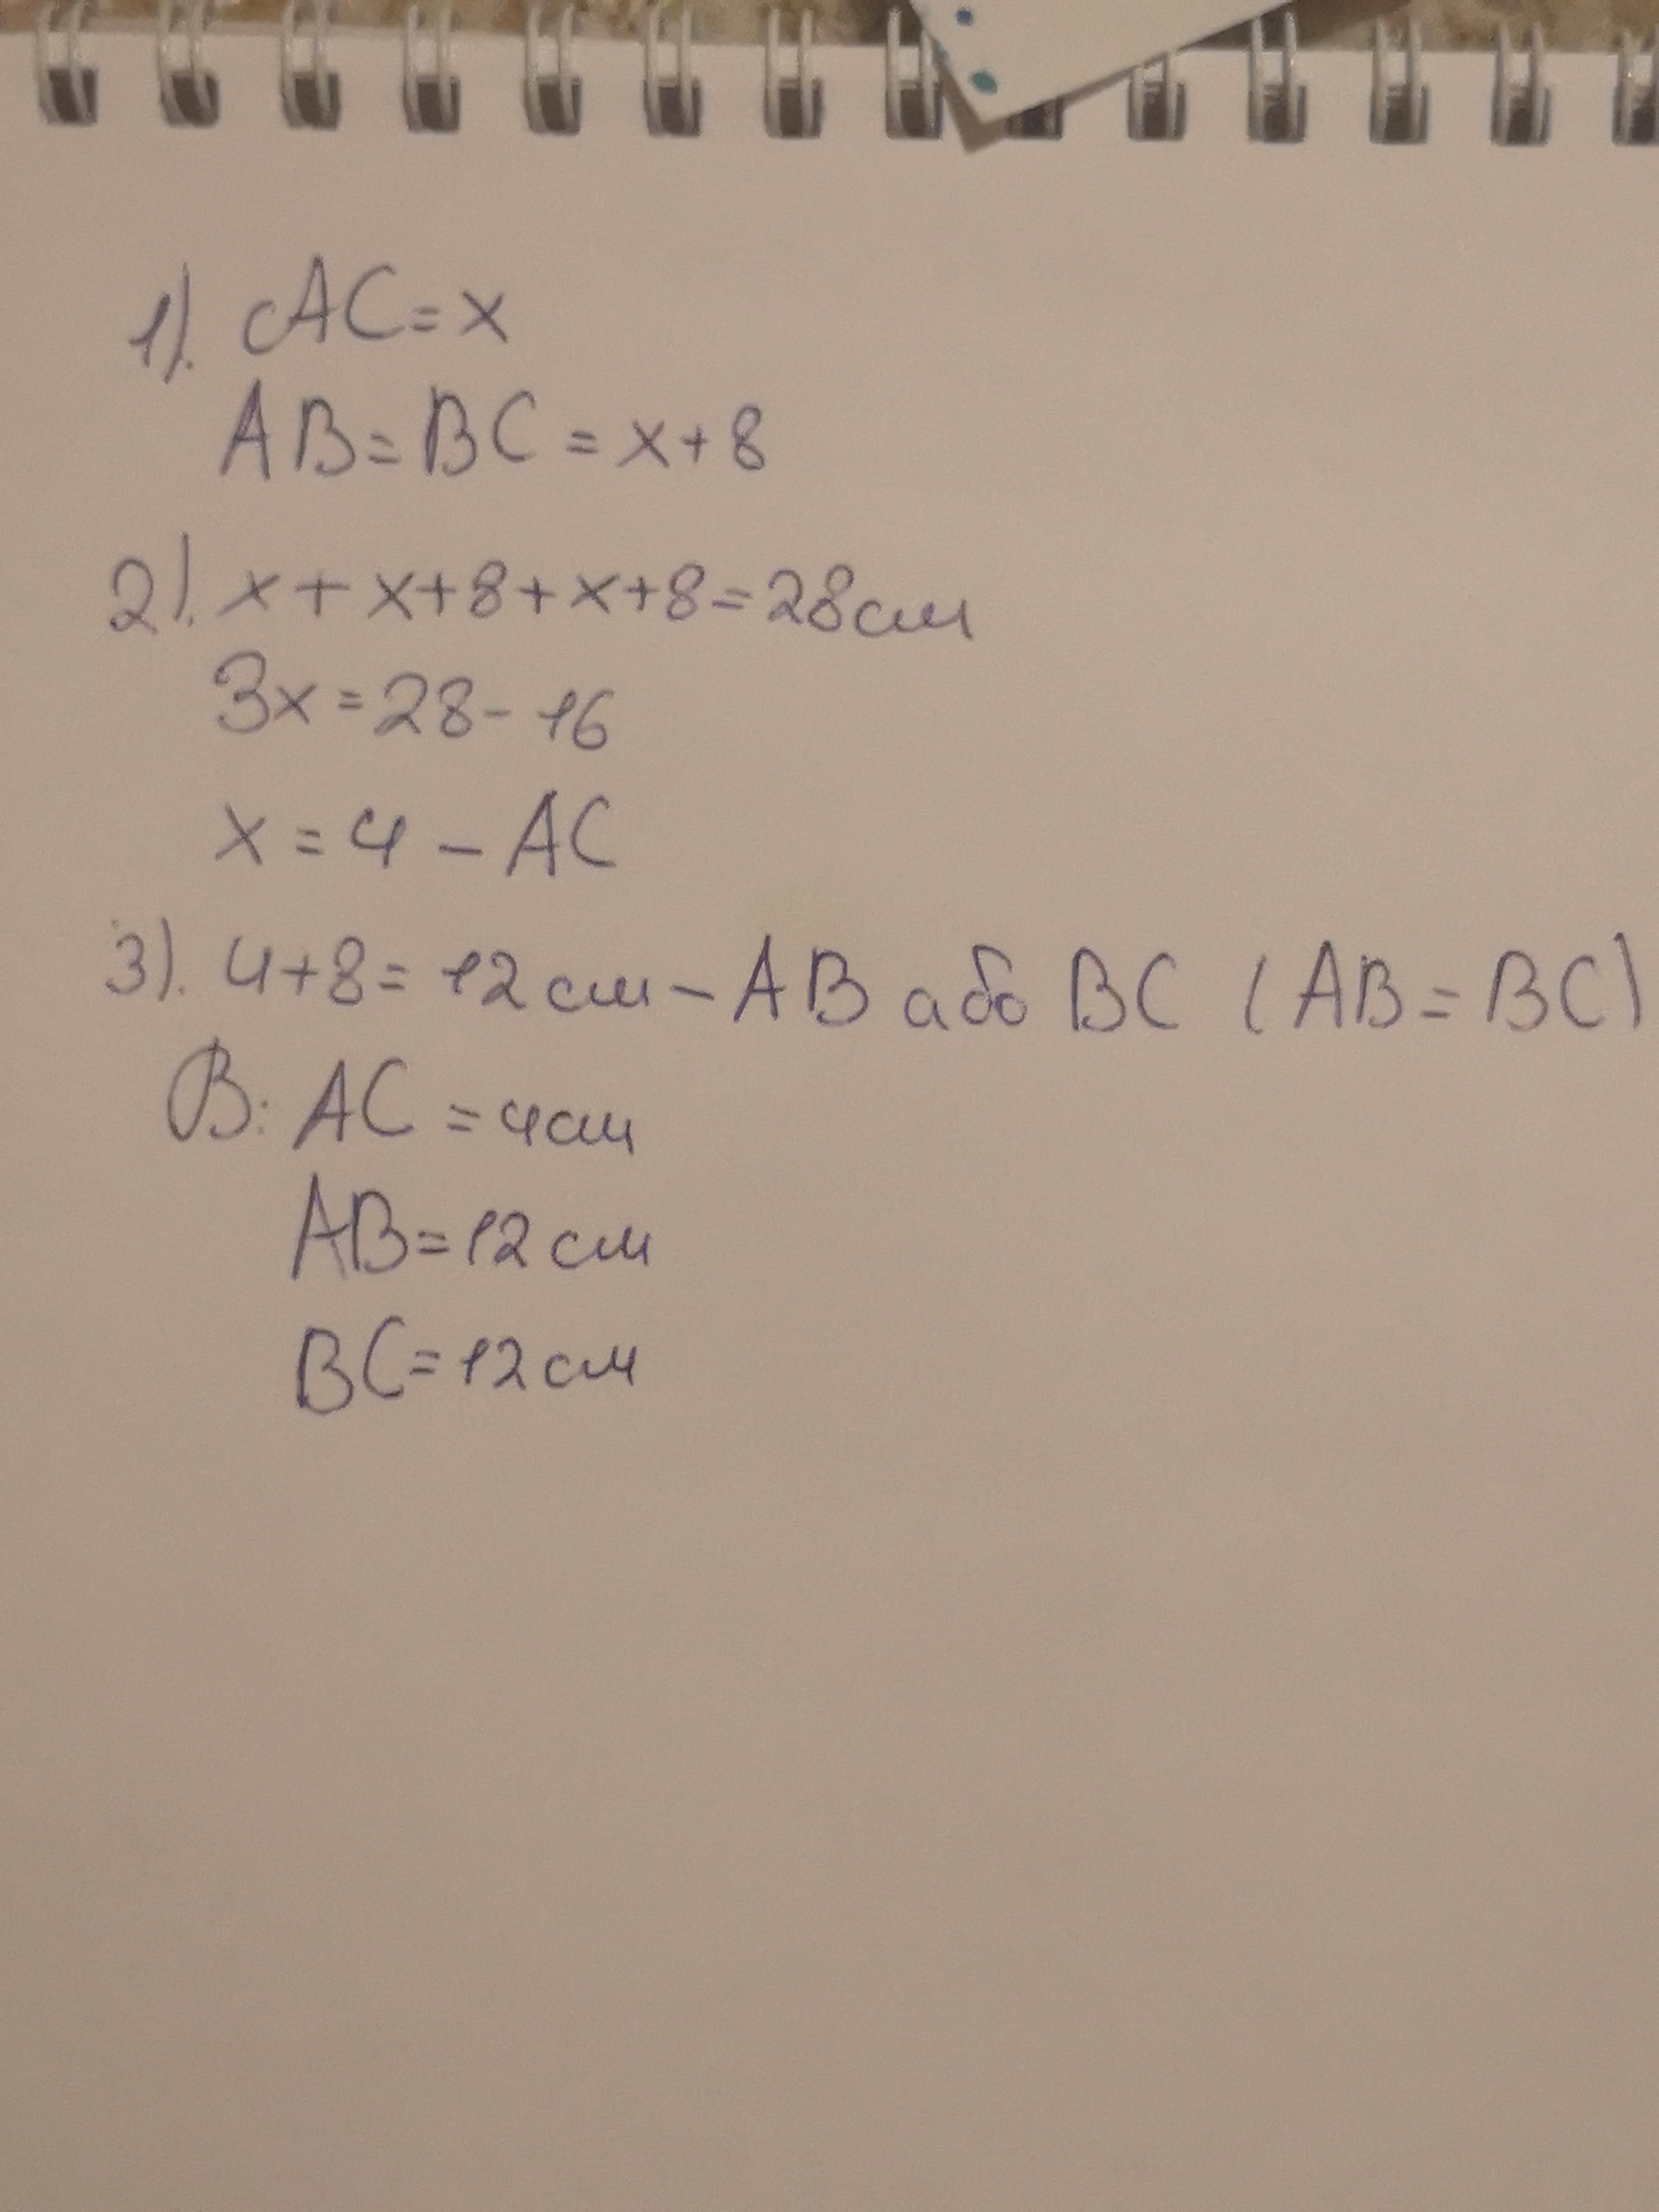 1). AC = x
AB = BC = x + 8
2). x + x + 8 + x + 8 = 28 см
3x = 28 - 16
x = 4 - AC
3). 4 + 8 = 12 см - AB або BC (AB = BC)
В: AC = 4 см
AB = 12 см
BC = 12 см